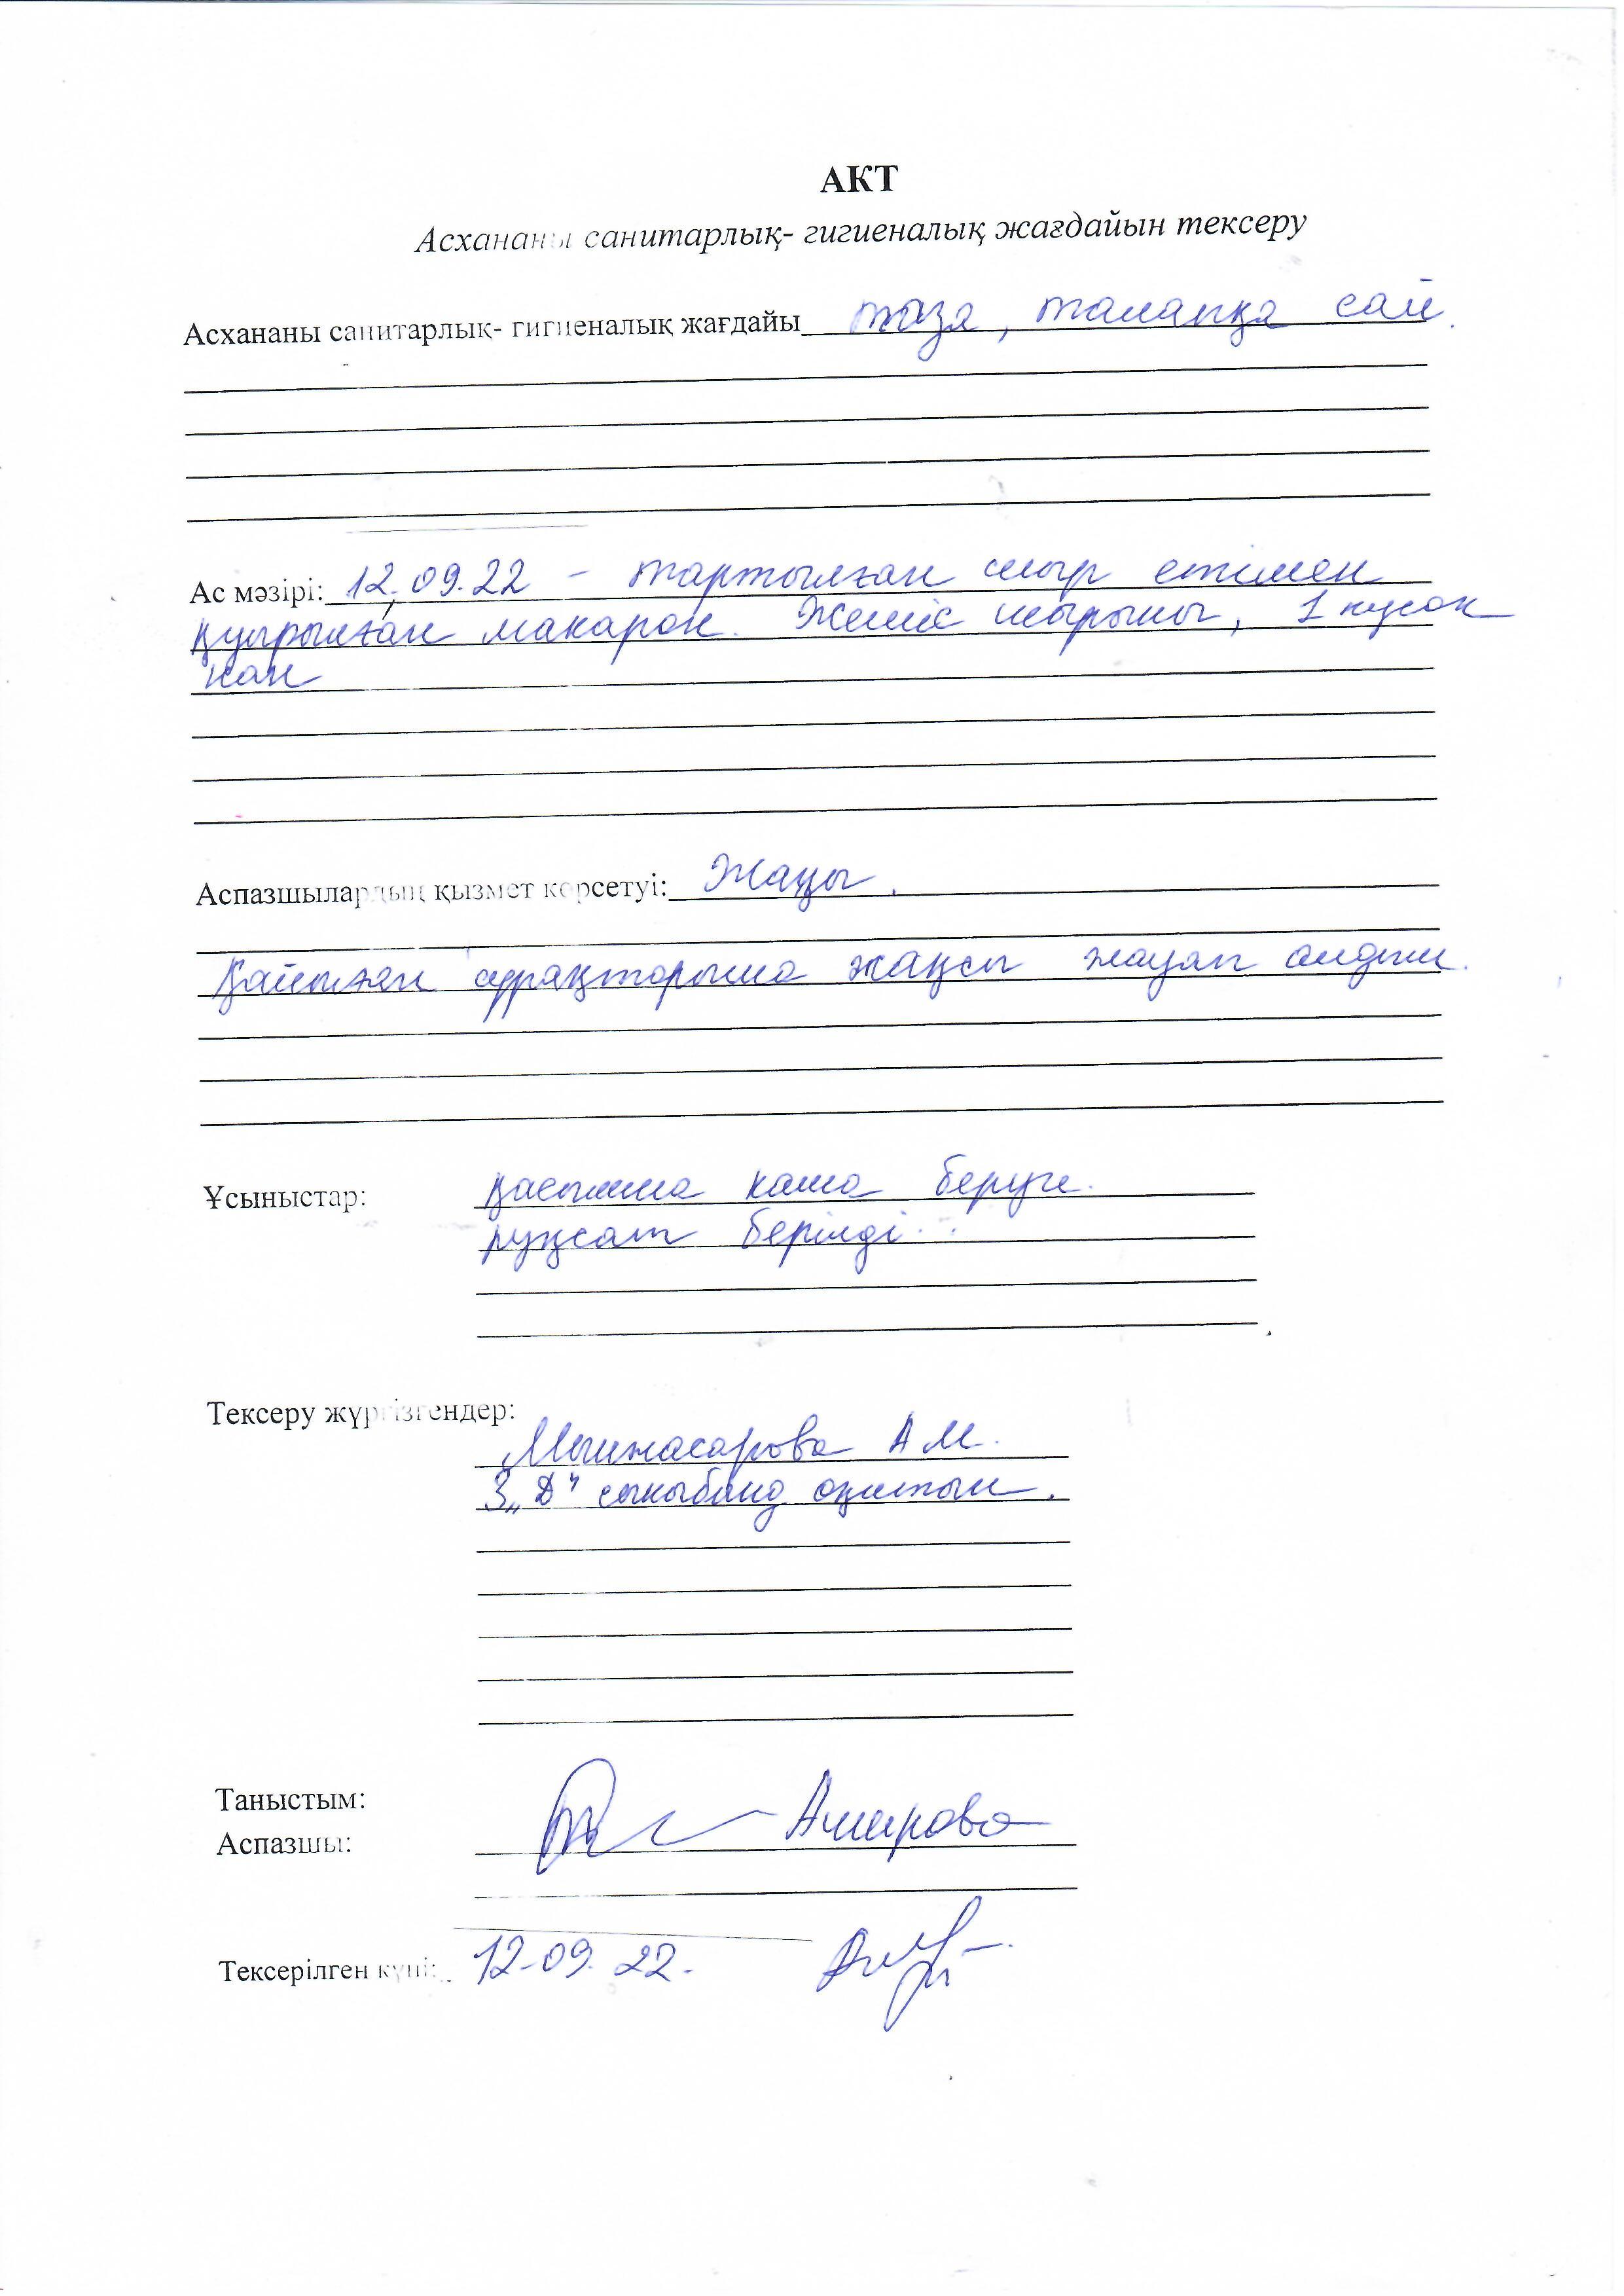 АКТ
Асхананы санитарлық- гигиеналық жағдайын тексеру
Асхананы санитарлық- гигиеналық жағдайы таза, талапқа сай.
Ас мәзірі: 12.09.22 - тартылған сиыр етімен
қуырылған макарон. Жеміс шырыны, 1 кусок
нан
Аспазшылардың қызмет көрсетуі: Жақсы.
сұрақтарыма жақсы жауап алдым.
Ұсыныстар: қасымша каша беруге
рұқсат берілді.
Тексеру жүргізгендер:
Мынжасарова А М.
3 „Д" сыныбынд
Таныстым:
Аспазшы: Амирова
Тексерілген күні: 12.09.22.